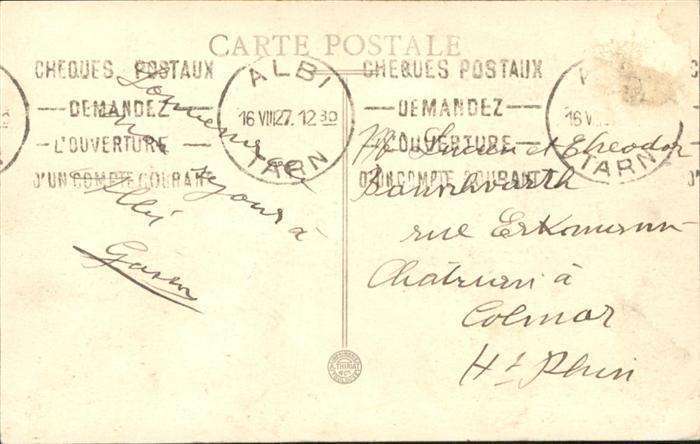 CARTE POSTALE
CHEQUES POSTAUX
DEMANDEZ
L'OUVERTURE
D'UN COMPTE COURANT
ALBI
16 VIII 27. 12 30
TARN
CHEQUES POSTAUX
DEMANDEZ
L'OUVERTURE
D'UN COMPTE COURANT
16 V
TARN
séjour à
Albi
Lucien et Theodor
rue Erkmann
Chatrian à
Colmar
Ht Rhin